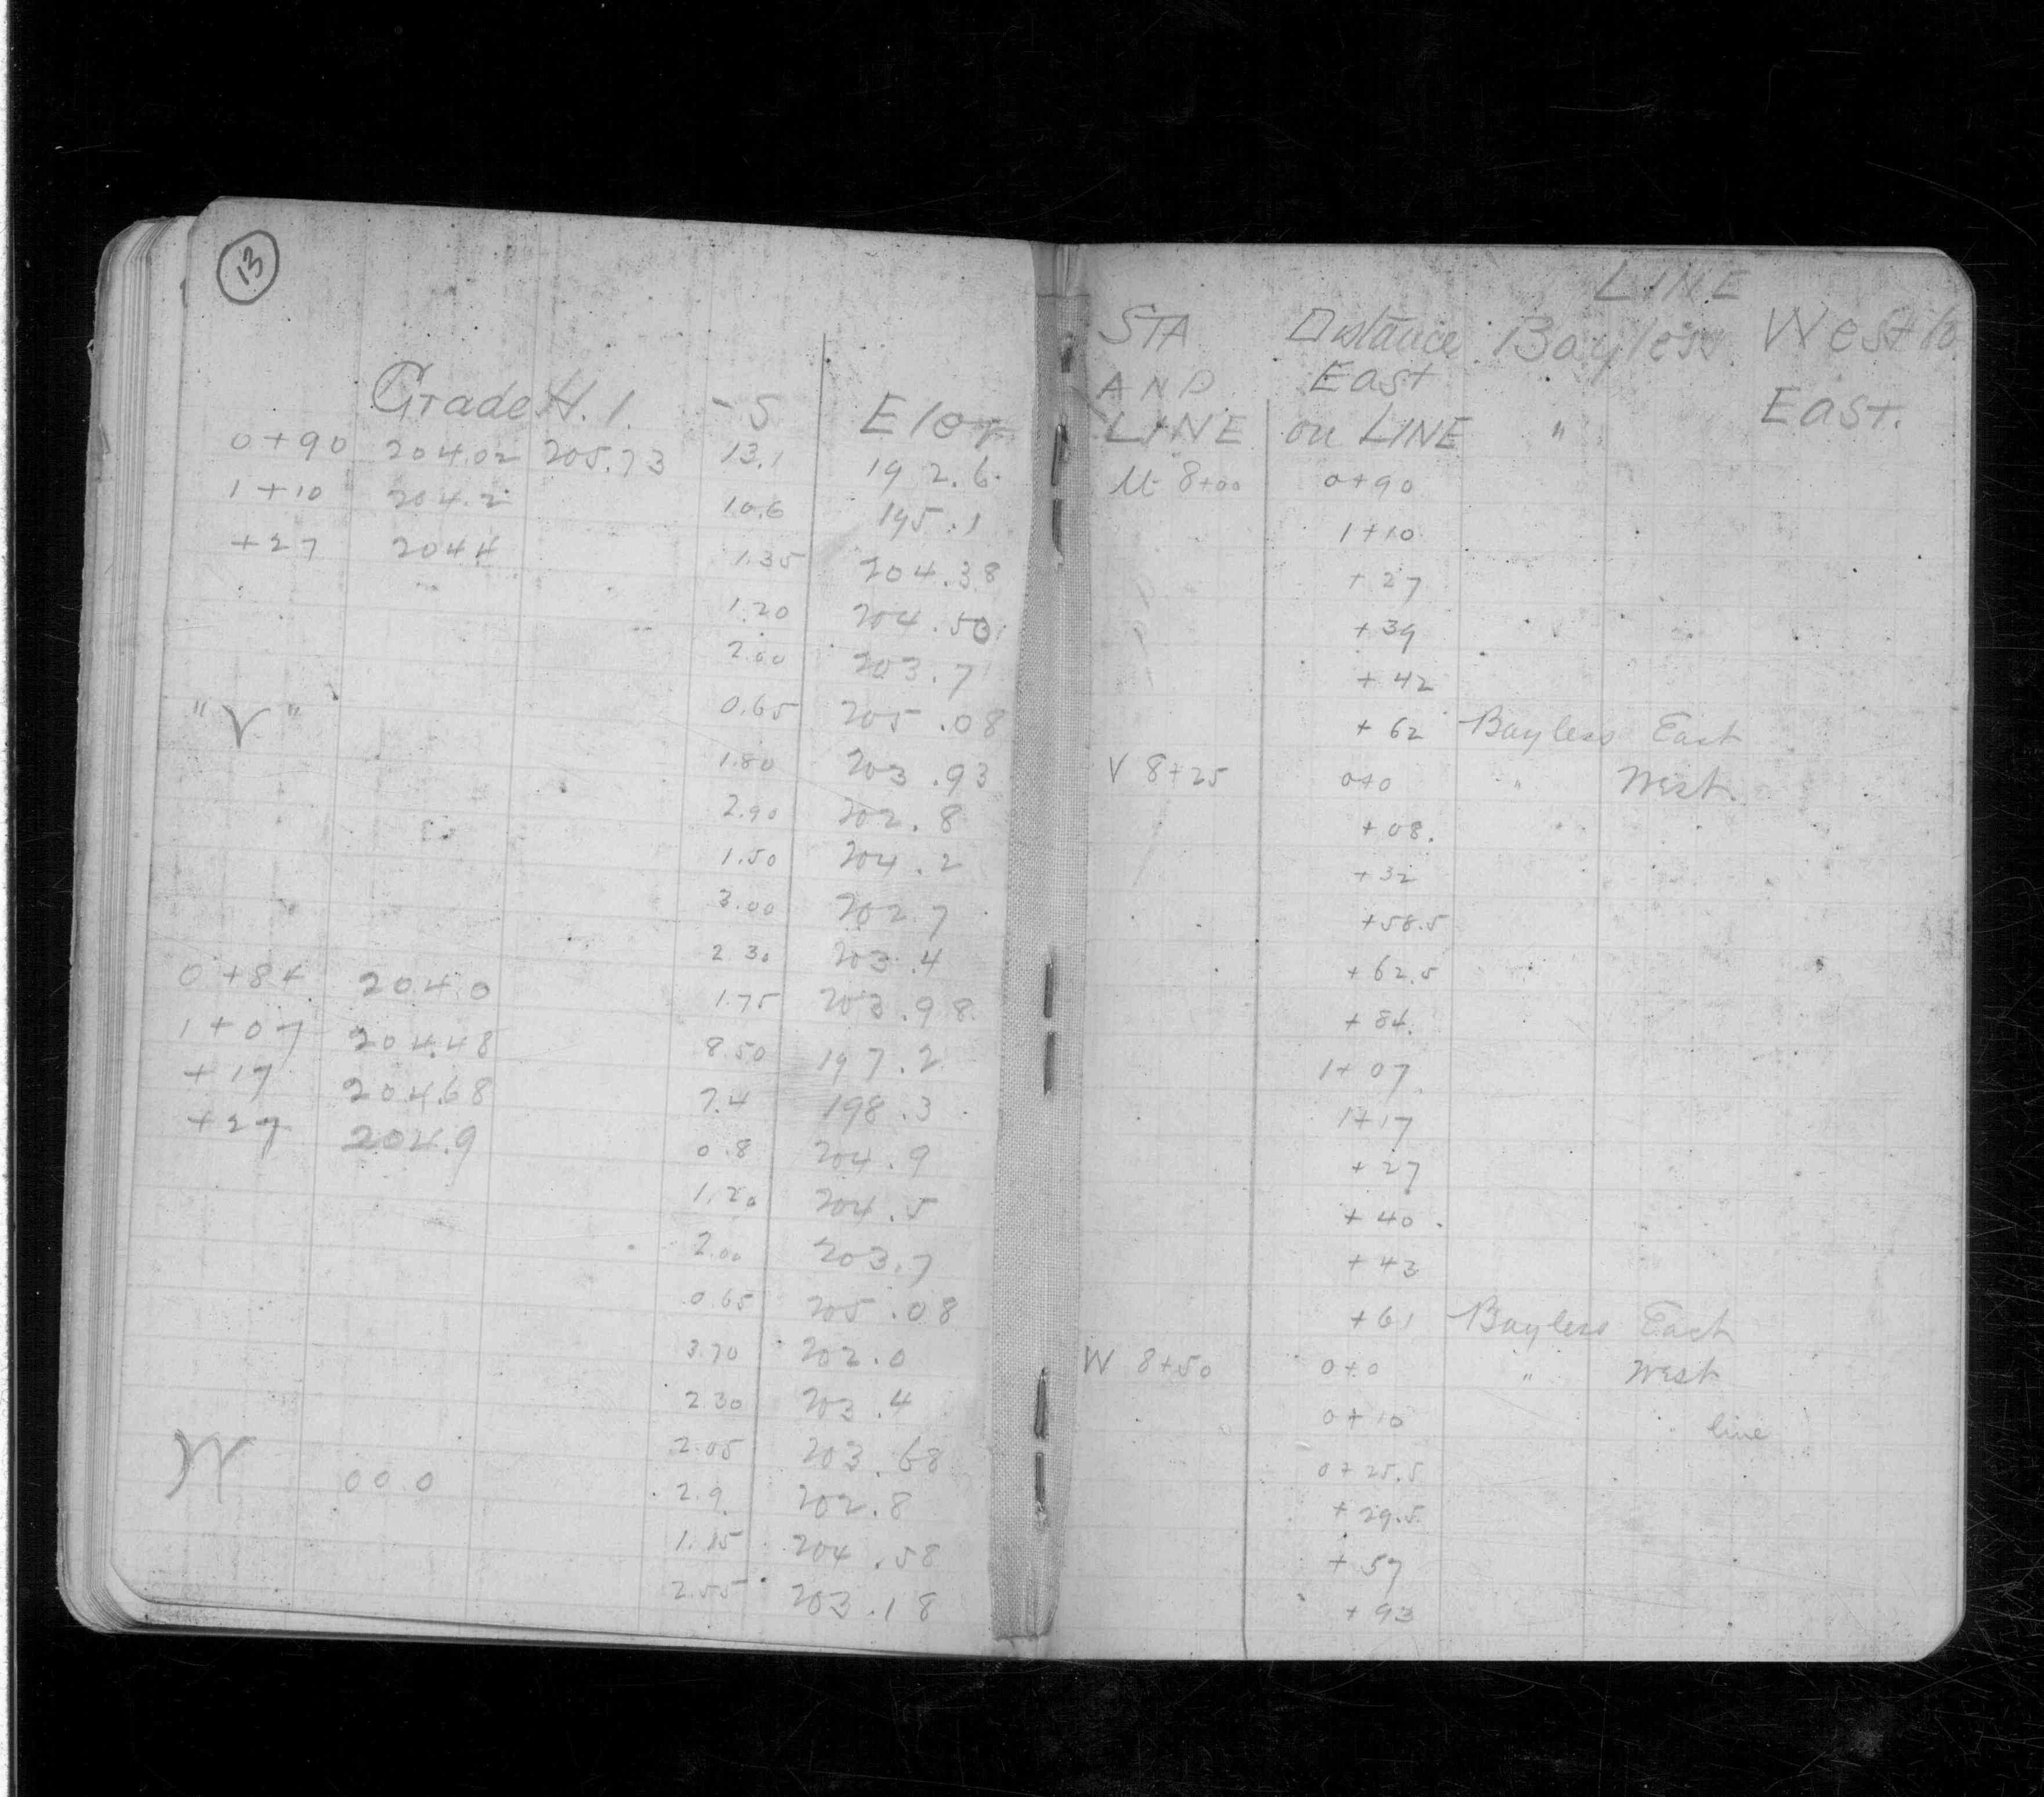 13
Grade H.I. -S Elev
0+90 204.02 205.73 13.1 192.6
1+10 204.2 10.6 195.1
+27 204.4 1.35 204.38
1.20 204.53
2.00 203.7
"V" 0.65 205.08
1.80 203.93
2.90 202.8
1.50 204.2
3.00 202.7
2.30 203.4
0+84 204.0 1.75 203.98
1+07 204.48 8.50 197.2
+17 204.68 7.4 198.3
+27 204.9 0.8 204.9
1.20 204.5
2.00 203.7
0.65 205.08
3.70 202.0
2.30 203.4
W 2.05 203.68
000 2.9 202.8
1.15 204.58
2.55 203.18
LINE
STA Distance Bayless West to
AND East
LINE on LINE " East.
U 8+00 0+90
1+10
+27
+39
+42
+62 Bayless East
V 8+25 0+0 " West
+08.
+32
+58.5
+62.5
+84.
1+07
1+17
+27
+40
+43
+61 Bayless East
W 8+50 0+0 " West
0+10 line
0+25.5
+29.5
+57
+93